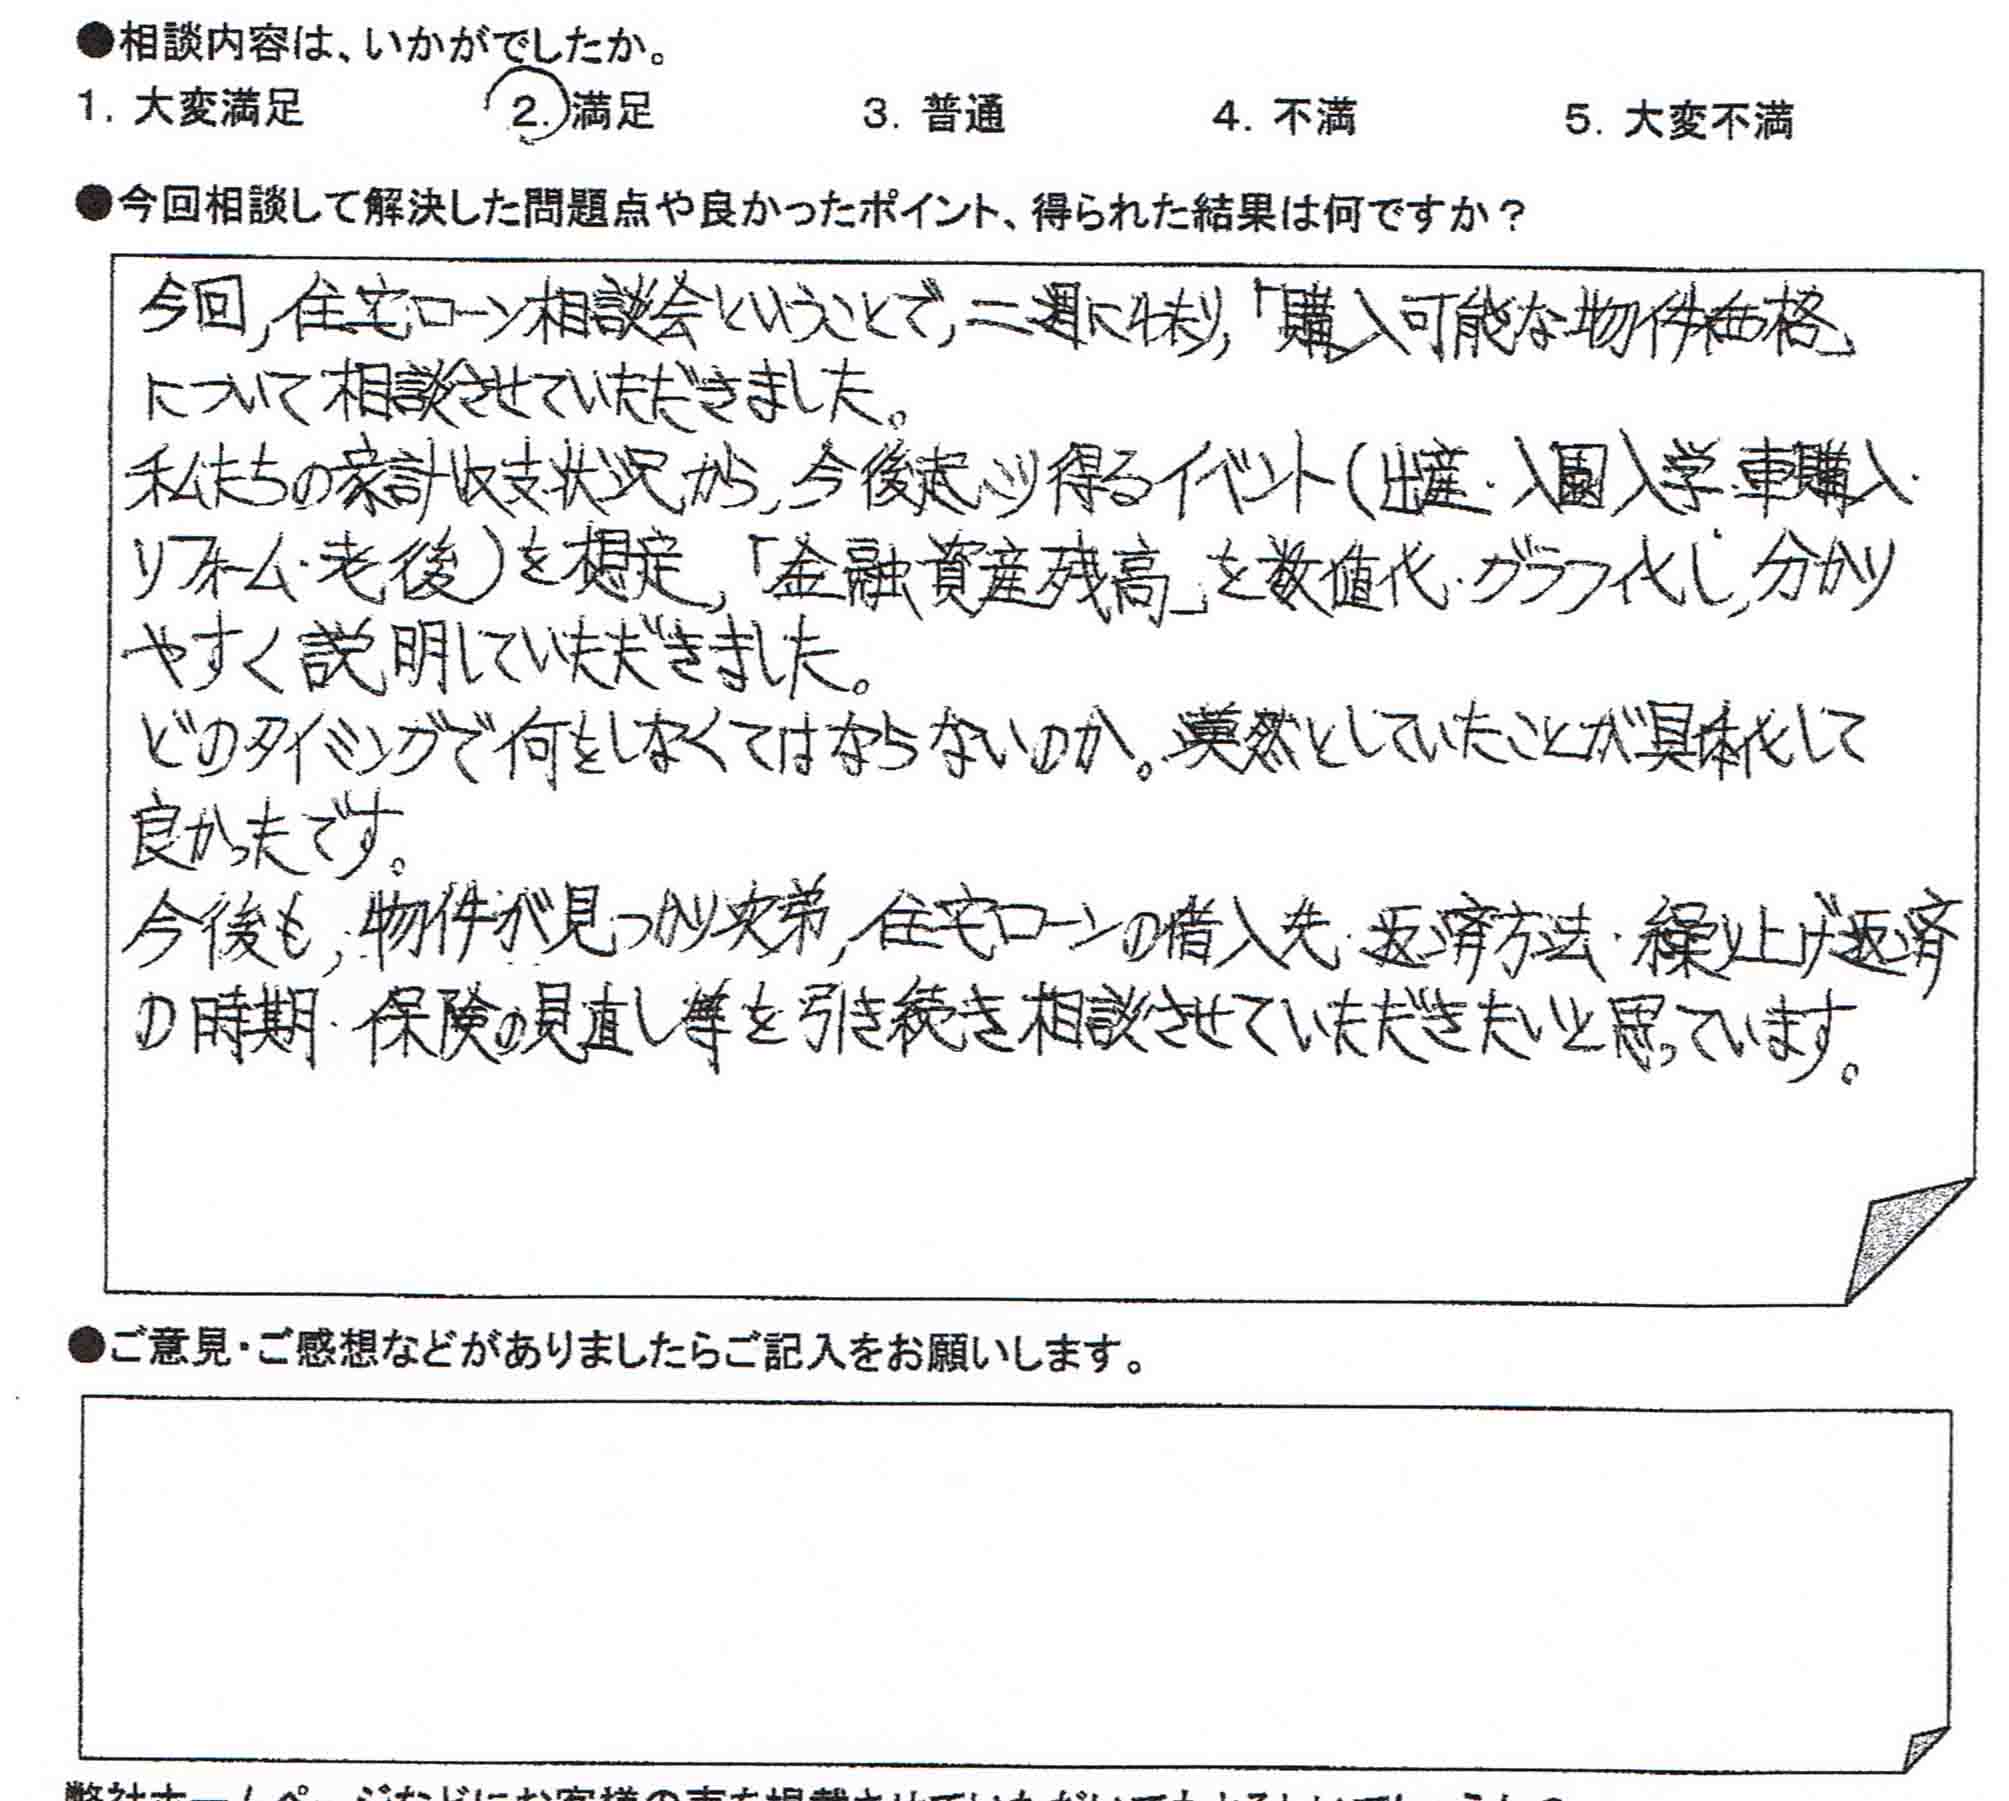 ●相談内容は、いかがでしたか。
1. 大変満足 2. 満足 3. 普通 4. 不満 5. 大変不満
●今回相談して解決した問題点や良かったポイント、得られた結果は何ですか？
今回,住宅ローン相談会ということで,二週にわたり,「購入可能な物件価格」
について相談させていただきました。
私たちの家計収支状況から,今後起こり得るイベント(出産・入園入学・車購入・
リフォーム・老後)を想定,「金融資産残高」を数値化・グラフ化し,分かり
やすく説明していただきました。
どのタイミングで何をしなくてはならないのか。漠然としていたことが具体化して
良かったです。
今後も,物件が見つかり次第,住宅ローンの借入先・返済方法・繰り上げ返済
の時期・保険の見直し等を引き続き相談させていただきたいと思っています。
●ご意見・ご感想などがありましたらご記入をお願いします。
弊社ホームページなどにお客様の声を掲載させていただいてもよろしいでしょうか。